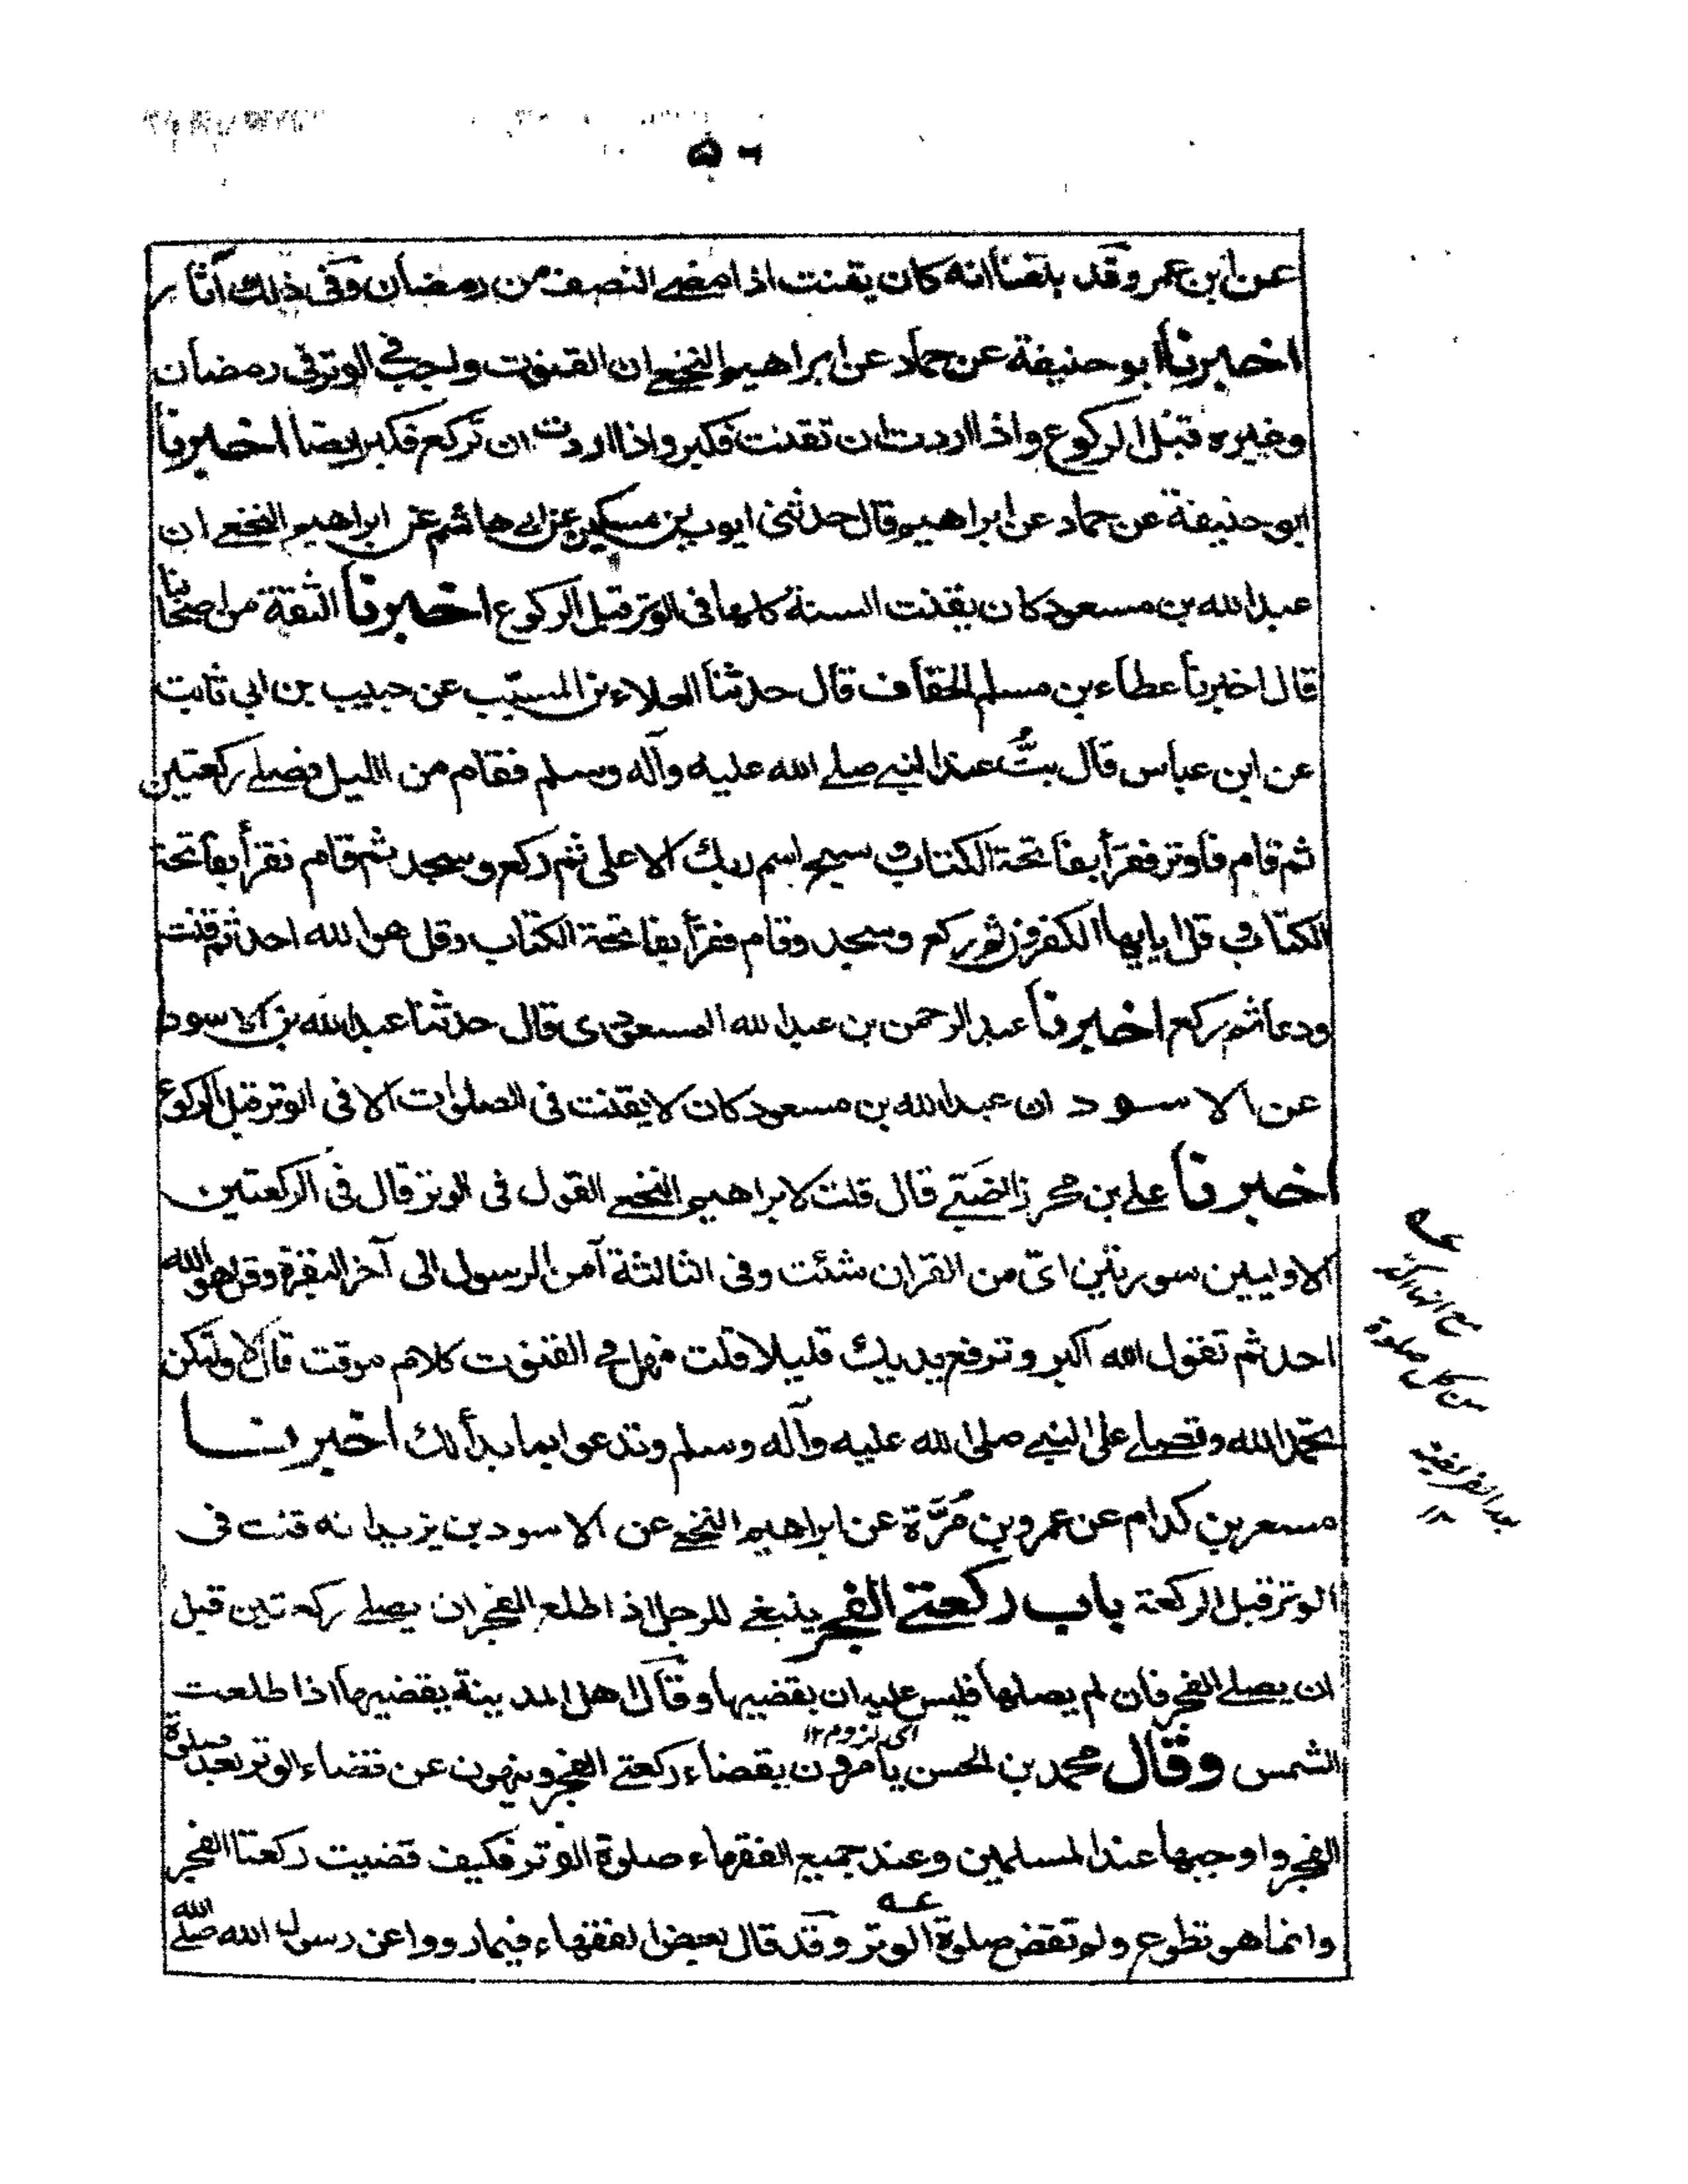 ٥٦
عن ابن عمر وقد بلغنا انه كان يقنت اذا مضى النصف من رمضان وفى ذلك آثار
اخبرنا ابو حنيفة عن حماد عن ابراهيم النخعي ان القنوت واجب فى الوتر فى رمضان
وغيره قبل الركوع واذا اردت ان تقنت فكبر واذا اردت ان تركع فكبر ايضا اخبرنا
ابو حنيفة عن حماد عن ابراهيم قال حدثنى ايوب بن مسكين عن ابي هاشم عن ابراهيم النخعي ان
عبد الله بن مسعود كان يقنت السنة كلها فى الوتر قبل الركوع اخبرنا الثقة من اصحابنا
قال اخبرنا عطاء بن مسلم الخفاف قال حدثنا العلاء بن المسيّب عن حبيب بن ابى ثابت
عن ابن عباس قال بتُّ عند النبي صلے الله عليه وآله وسلم فقام من الليل فصلے ركعتين
ثم قام فاوتر فقرأ بفاتحة الكتاب و سبح اسم ربك الاعلى ثم ركع وسجد ثم قام فقرأ بفاتحة
الكتاب و قل يا ايها الكفرون ثم ركع وسجد وقام فقرأ بفاتحة الكتاب وقل هو الله احد ثم قنت
ودعا ثم ركع اخبرنا عبد الرحمن بن عبد الله المسعودى قال حدثنا عبد الله بن الاسود
عن الاسود ان عبد الله بن مسعود كان لا يقنت فى الصلوات الا فى الوتر قبل الركوع
اخبرنا علے بن محرز الضبّي قال قلت لابراهيم النخعي القول فى الوتر قال فى الركعتين
الاوليين سورتين اىّ من القران شئت وفى الثالثة آمن الرسول الى آخر البقرة وقل هو الله
احد ثم تقول الله اكبر وترفع يديك قليلا قلت فهل في القنوت كلام موقت قال لا ولكن
تحمد الله وتصلے على النبي صلى الله عليه وآله وسلم وتدعو بما بدأ لك اخبرنا
مسعر بن كدام عن عمرو بن مُرَّة عن ابراهيم النخعي عن الاسود بن يزيد انه قنت فى
الوتر قبل الركعة باب ركعتے الفجر ينبغي للرجل اذا طلع الفجر ان يصلے ركعتين قبل
ان يصلے الفجر فان لم يصلها فليس عليه ان يقضيها وقال اهل المدينة يقضيها اذا طلعت
اى لزوم ١٢
الشمس وقال محمد بن الحسن يامرون بقضاء ركعتے الفجر وينهون عن قضاء الوتر بعد صلوة
الفجر واوجبها عند المسلمين وعند جميع الفقهاء صلوة الوتر فكيف قضيت ركعتا الفجر
وانما هو تطوع ولم تقض صلوة الوتر عـه وقد قال بعض الفقهاء فيما رووا عن رسول الله صلے الله
عـه
من كل صلوة
بعد الفريضة
١٢